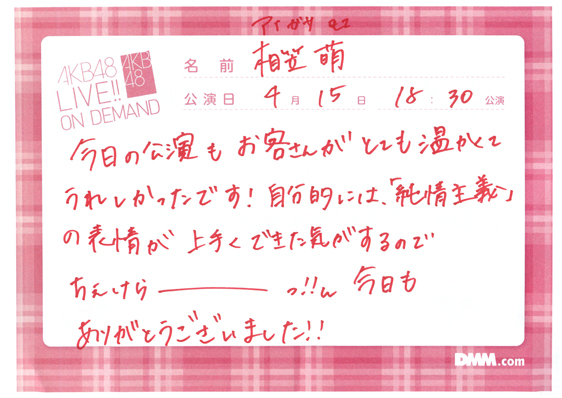 アイガサ モエ
AKB48
LIVE!!
ON DEMAND
AKB
48
名前 相笠 萌
公演日 4月15日 18:30公演
今日の公演も お客さんがとても温かくて
うれしかったです！自分的には、「純情主義」
の表情が 上手くできた気がするので
ちぇけら―――っ!!ん 今日も
ありがとうございました!!
DMM.com